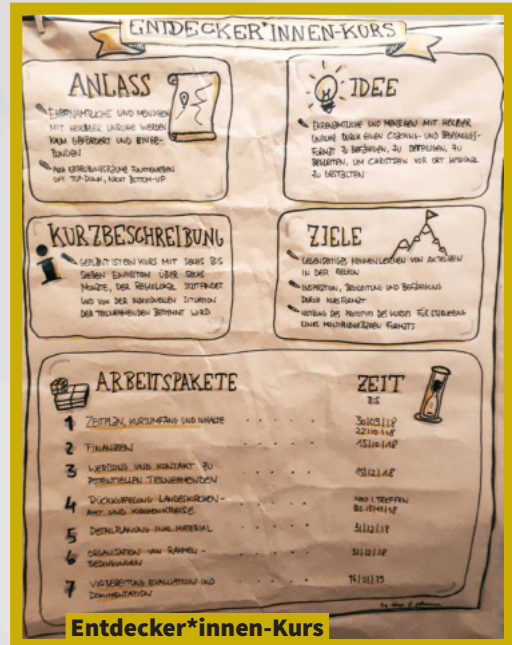 ENTDECKER*INNEN-KURS
ANLASS
EHRENAMTLICHE UND MENSCHEN
MIT HEILIGER UNRUHE WERDEN
KAUM GEFÖRDERT UND EINGE-
BUNDEN
AUCH ERPROBUNGSRÄUME FUNKTIONIEREN
OFT TOP-DOWN, NICHT BOTTOM-UP
IDEE
EHRENAMTLICHE UND MENSCHEN MIT HEILIGER
UNRUHE DURCH EINEN COACHING- UND
FORMAT ZU BEFÄHIGEN, ZU BETEILIGEN, ZU
BEGLEITEN, UM CHRISTSEIN VOR ORT
ZU GESTALTEN
KURZBESCHREIBUNG
GEPLANT IST EIN KURS MIT SECHS BIS
SIEBEN EINHEITEN ÜBER SECHS
MONATE, DER REGIOLOKAL STATTFINDET
UND VON DER INDIVIDUELLEN SITUATION
DER TEILNEHMENDEN BESTIMMT WIRD
ZIELE
GEGENSEITIGES KENNENLERNEN VON AKTEUREN
IN DER REGION
INSPIRATION, BEGLEITUNG UND BEFÄHIGUNG
DURCH KURSFORMAT
NUTZUNG DES PROTOTYPS DES KURSES FÜR ETABLIERUNG
EINES MULTIPLIZIERBAREN FORMATS
ARBEITSPAKETE
ZEIT
BIS
1 ZEITPLAN, KURSUMFANG UND INHALTE 30|09|18
22|10|18
2 FINANZEN 15|10|18
3 WERBUNG UND KONTAKT ZU
POTENTIELLEN TEILNEHMENDEN 15|12|18
4 RÜCKKOPPLUNG LANDESKIRCHEN-
AMT UND KIRCHENKREISE NACH 1. TREFFEN
BIS 15|11|18
5 DETAILPLANUNG INKL. MATERIAL 31|12|18
6 ORGANISATION VON RAHMEN-
BEDINGUNGEN 31|12|18
7 VORBEREITUNG EVALUATION UND
DOKUMENTATION 15|01|19
Entdecker*innen-Kurs